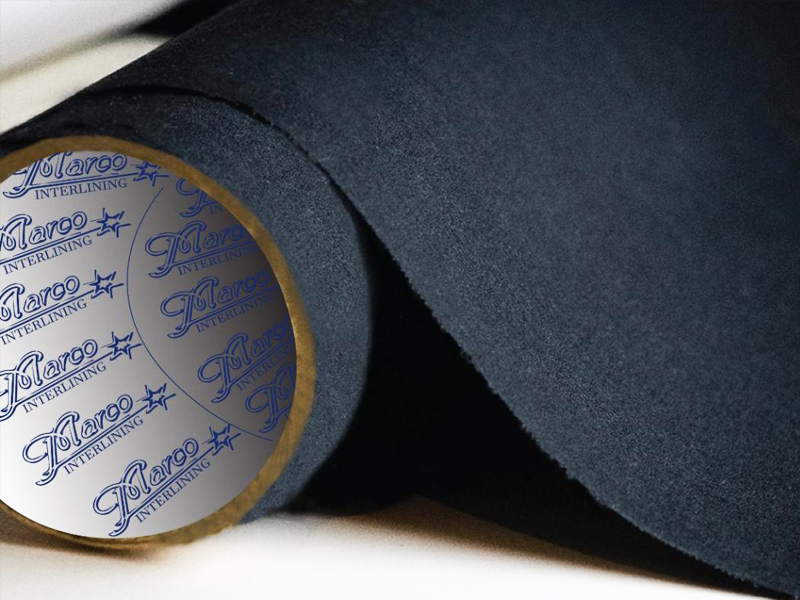 Marco
INTERLINING
Marco
INTERLINING
Marco
INTERLINING
Marco
INTERLINING
Marco
INTERLINING
Marco
INTERLINING
Marco
INTERLINING
Marco
INTERLINING
Marco